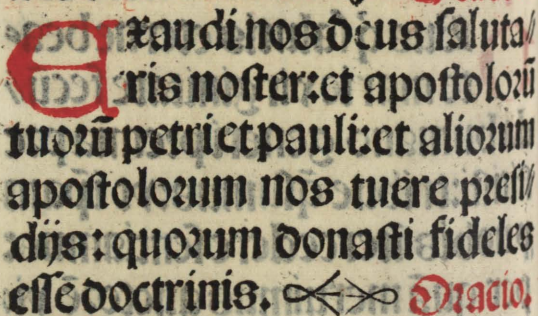 Exaudi nos deus saluta⸗
ris noſter: et apoſtoloꝛū
tuoꝛū petri et pauli: et alioꝛum
apoſtoloꝛum nos tuere pꝛeſi⸗
dijs: quoꝛum donaſti fideles
eſſe doctrinis. Oꝛacio.